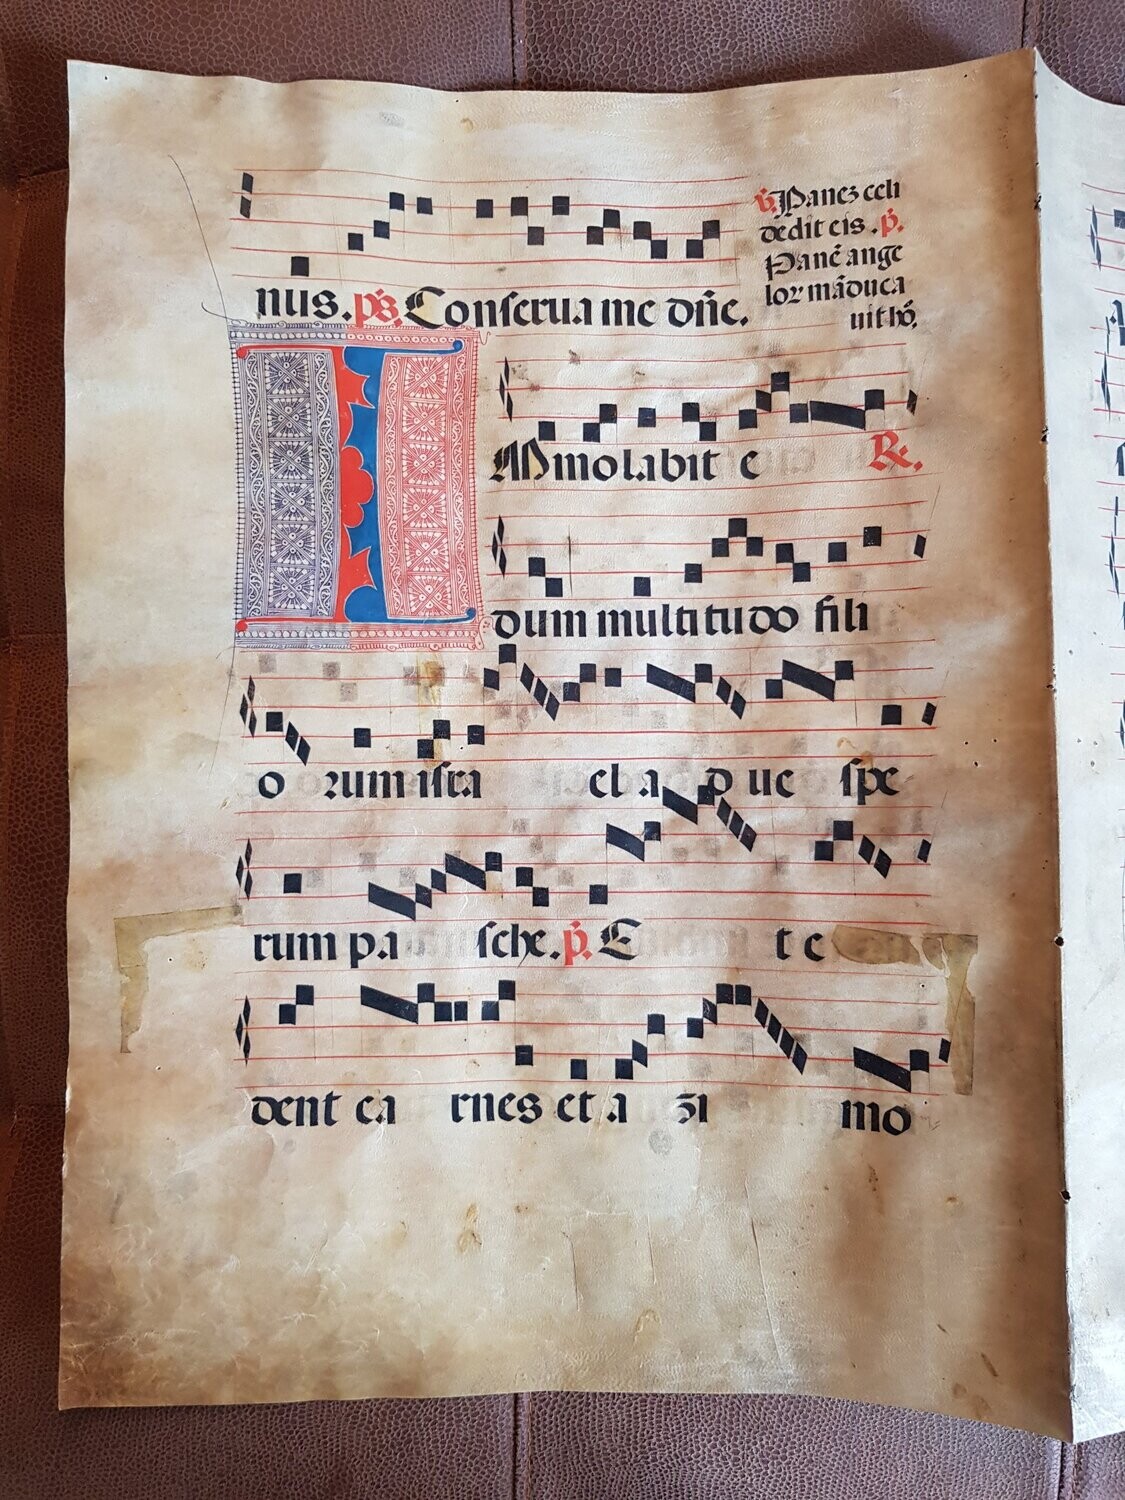 nus. ps. Conserua me dñe.
v. Panez celi
dedit eis. p.
Panē ange
lor māduca
uit hō.
I
Mmolabit e R.
dum multitudo fili
orum isra el ad ue spe
rum pa sche. p. E t e
dent ca rnes et a zi mo